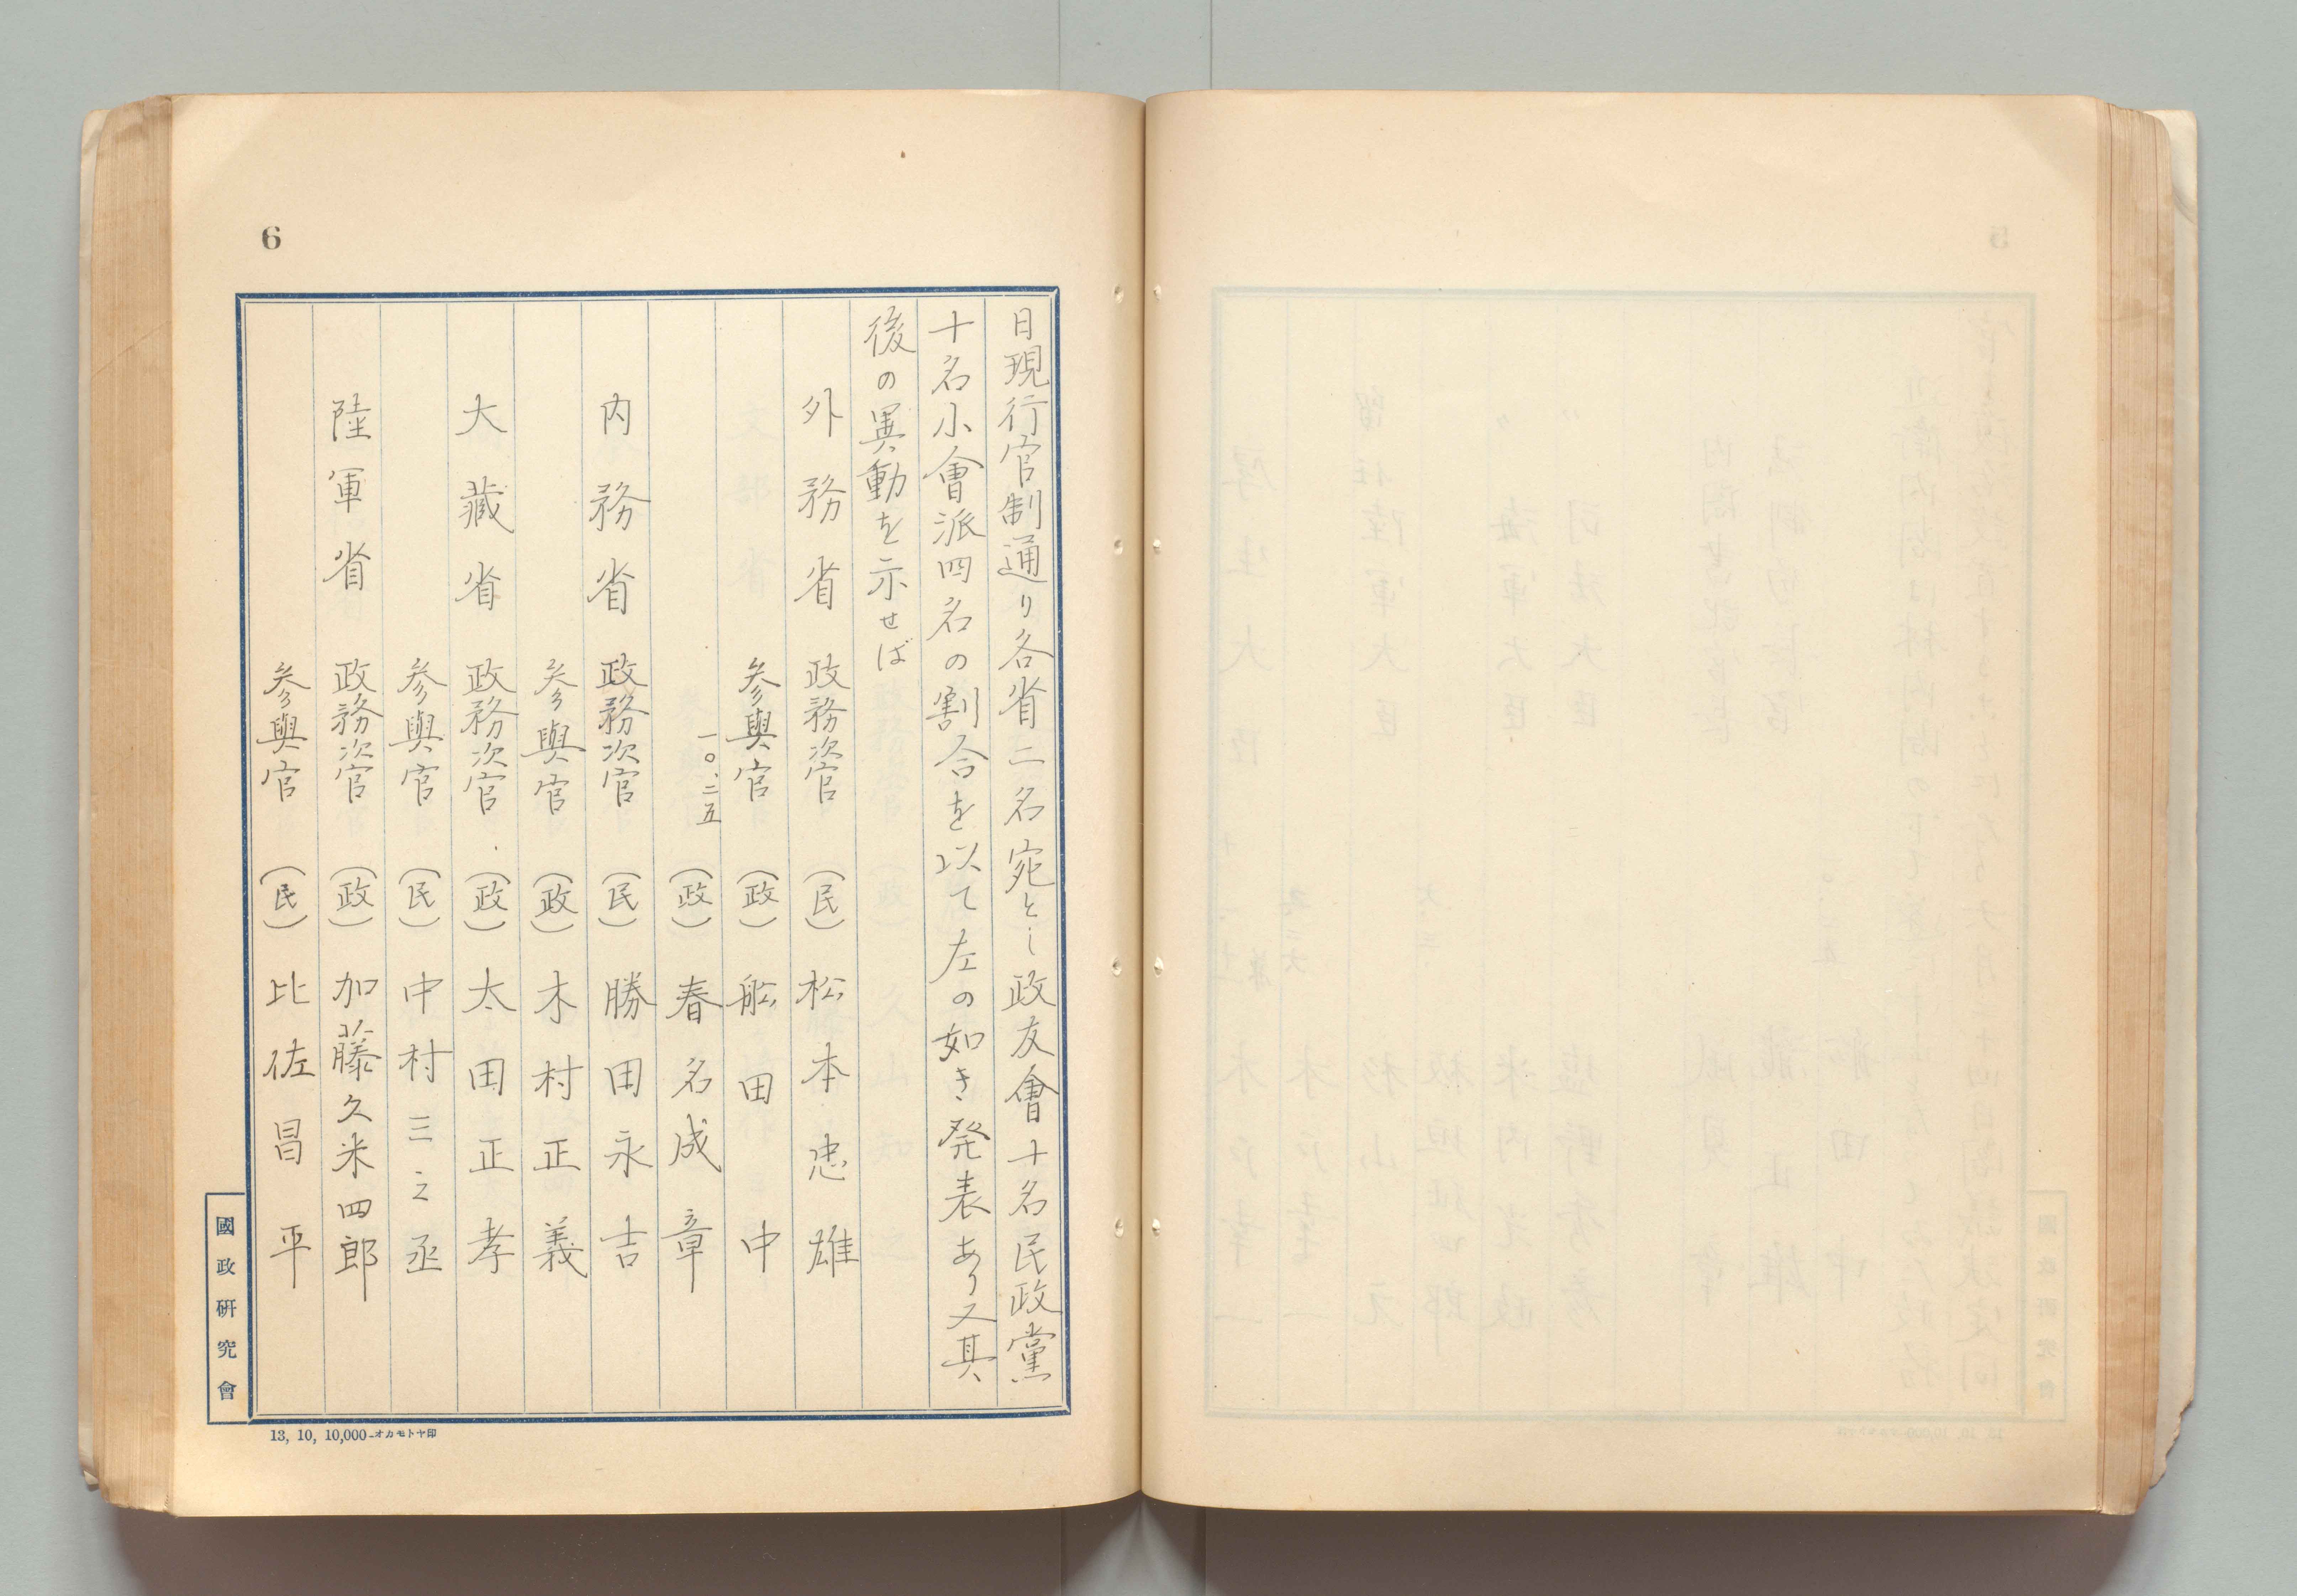 6
日現行官制通り各省二名宛とし政友會十名民政黨
十名小會派四名の割合を以て左の如き発表あり又其
後の異動を示せば
外務省 政務次官 (民) 松本忠雄
参與官 (政) 船田中
一〇、二五 (政) 春名成章
内務省 政務次官 (民) 勝田永吉
参與官 (政) 木村正義
大藏省 政務次官 (政) 太田正孝
参與官 (民) 中村三之丞
陸軍省 政務次官 (政) 加藤久米四郎
参與官 (民) 比佐昌平
國政研究會
13, 10, 10,000-オカモトヤ印